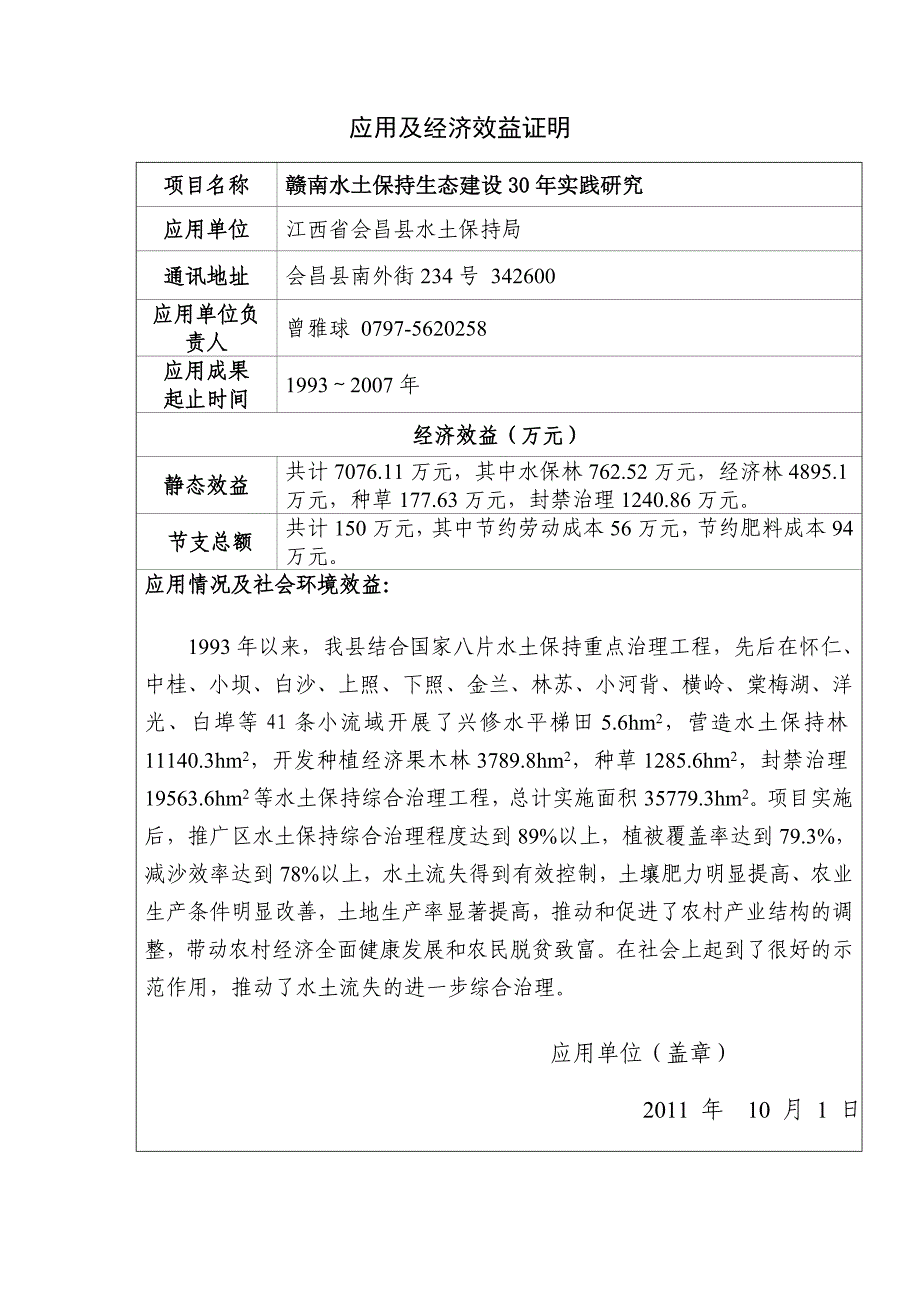 应用及经济效益证明
项目名称
赣南水土保持生态建设30年实践研究
应用单位
江西省会昌县水土保持局
通讯地址
会昌县南外街234号 342600
应用单位负
责人
曾雅球 0797-5620258
应用成果
起止时间
1993～2007年
经济效益（万元）
静态效益
共计7076.11万元，其中水保林762.52万元，经济林4895.1
万元，种草177.63万元，封禁治理1240.86万元。
节支总额
共计150万元，其中节约劳动成本56万元，节约肥料成本94
万元。
应用情况及社会环境效益：
1993年以来，我县结合国家八片水土保持重点治理工程，先后在怀仁、
中桂、小坝、白沙、上照、下照、金兰、林苏、小河背、横岭、棠梅湖、洋
光、白埠等41条小流域开展了兴修水平梯田5.6hm²，营造水土保持林
11140.3hm²，开发种植经济果木林3789.8hm²，种草1285.6hm²，封禁治理
19563.6hm²等水土保持综合治理工程，总计实施面积35779.3hm²。项目实施
后，推广区水土保持综合治理程度达到89%以上，植被覆盖率达到79.3%，
减沙效率达到78%以上，水土流失得到有效控制，土壤肥力明显提高、农业
生产条件明显改善，土地生产率显著提高，推动和促进了农村产业结构的调
整，带动农村经济全面健康发展和农民脱贫致富。在社会上起到了很好的示
范作用，推动了水土流失的进一步综合治理。
应用单位（盖章）
2011 年 10 月 1 日